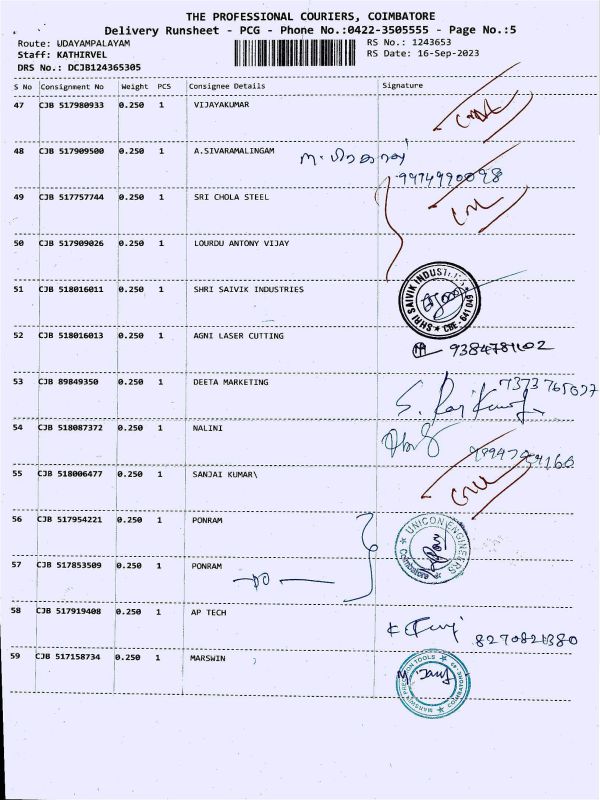 THE PROFESSIONAL COURIERS, COIMBATORE
Delivery Runsheet - PCG - Phone No.:0422-3505555 - Page No.:5
Route: UDAYAMPALAYAM RS No.: 1243653
Staff: KATHIRVEL RS Date: 16-Sep-2023
DRS No.: DCJB124365305
S No Consignment No Weight PCS Consignee Details Signature
47 CJB 517980933 0.250 1 VIJAYAKUMAR
48 CJB 517909500 0.250 1 A.SIVARAMALINGAM
9974990098
49 CJB 517757744 0.250 1 SRI CHOLA STEEL
50 CJB 517909026 0.250 1 LOURDU ANTONY VIJAY
51 CJB 518016011 0.250 1 SHRI SAIVIK INDUSTRIES
SHRI SAIVIK INDUSTRIES ★ CBE - 641 049 ★
52 CJB 518016013 0.250 1 AGNI LASER CUTTING
9384781102
53 CJB 89849350 0.250 1 DEETA MARKETING
7373765027
S. Raj Kumar
54 CJB 518087372 0.250 1 NALINI
55 CJB 518006477 0.250 1 SANJAI KUMAR\
56 CJB 517954221 0.250 1 PONRAM
UNICON ENGINEERS ★ Coimbatore ★
57 CJB 517853509 0.250 1 PONRAM
58 CJB 517919408 0.250 1 AP TECH
8270821380
59 CJB 517158734 0.250 1 MARSWIN
MARSWIN PRECISION TOOLS ★ COIMBATORE